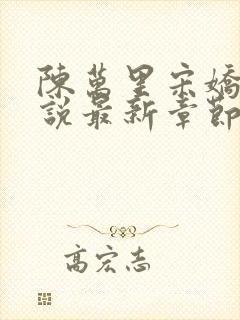 陳萬里宋嬌
說最新章節
高宏志